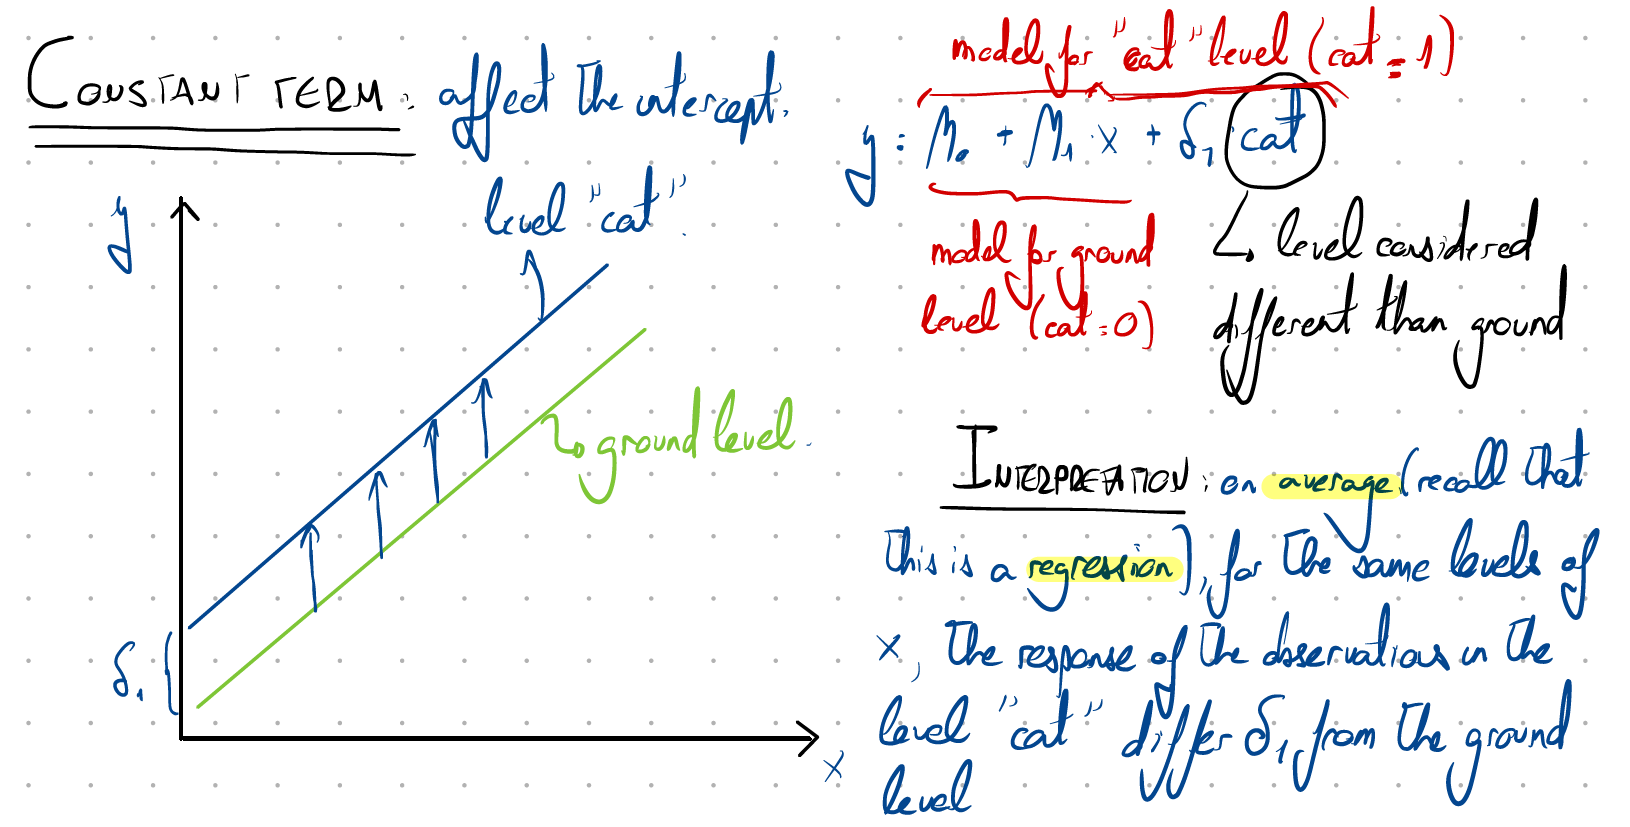 CONSTANT TERM: affect the intercept.
y
level "cat".
ground level.
δ₁
x
model for "cat" level (cat = 1)
y = β₀ + β₁ · x + δ₁ cat
model for ground
level (cat = 0)
level considered
different than ground
INTERPRETATION: on average (recall that
this is a regression), for the same levels of
x, the response of the observations in the
level "cat" differ δ₁ from the ground
level